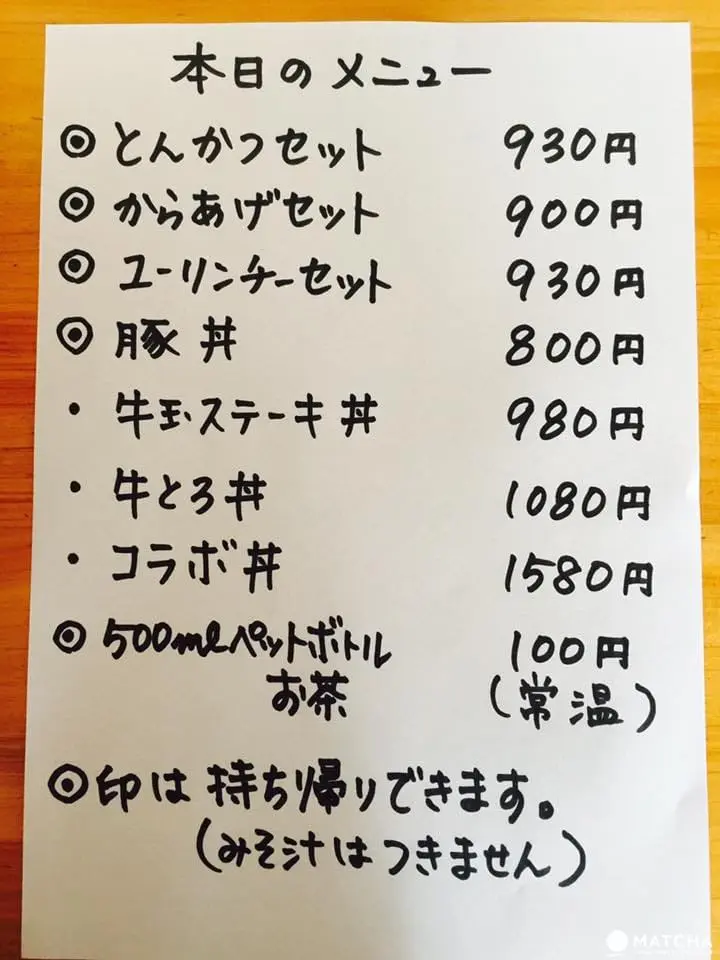 本日のメニュー
◎とんかつセット 930円
◎からあげセット 900円
◎ユーリンチーセット 930円
◎豚丼 800円
・牛玉ステーキ丼 980円
・牛とろ丼 1080円
・コラボ丼 1580円
◎500mlペットボトル 100円
お茶 (常温)
◎印は持ち帰りできます。
(みそ汁はつきません)
MATCHA